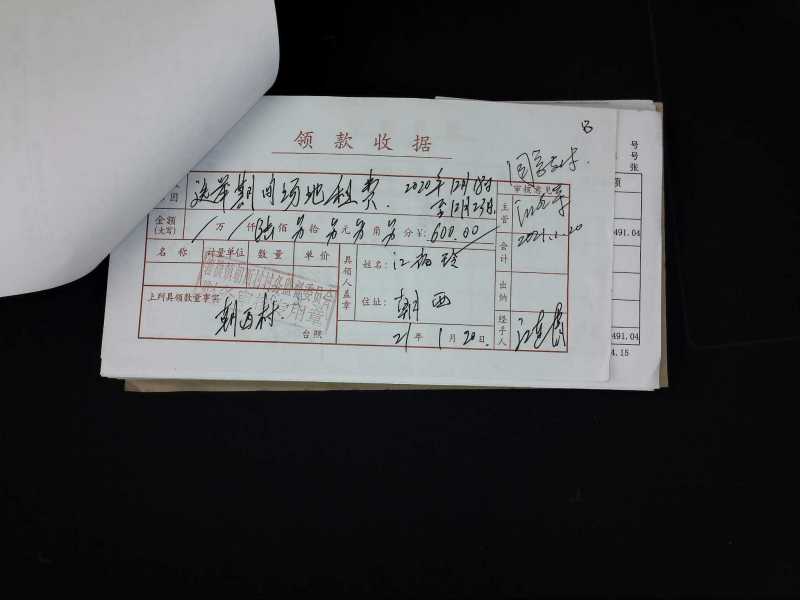 领款收据
号
号
张
同意支付.
因 选举期间场地租费. 2020年12月18日
至12月23日.
审核意见
金额(大写) / 万 / 仟 陆 佰 另 拾 另 元 另 角 另 分 ¥: 600.00
主管
2021.1.20
491.04
名称 计量单位 数量 单价
具领人盖章
姓名: 江
会计
住址: 朝西
出纳
上列具领数量事实
朝西村.
台照
21年1月20日.
经手人
491.04
4.15